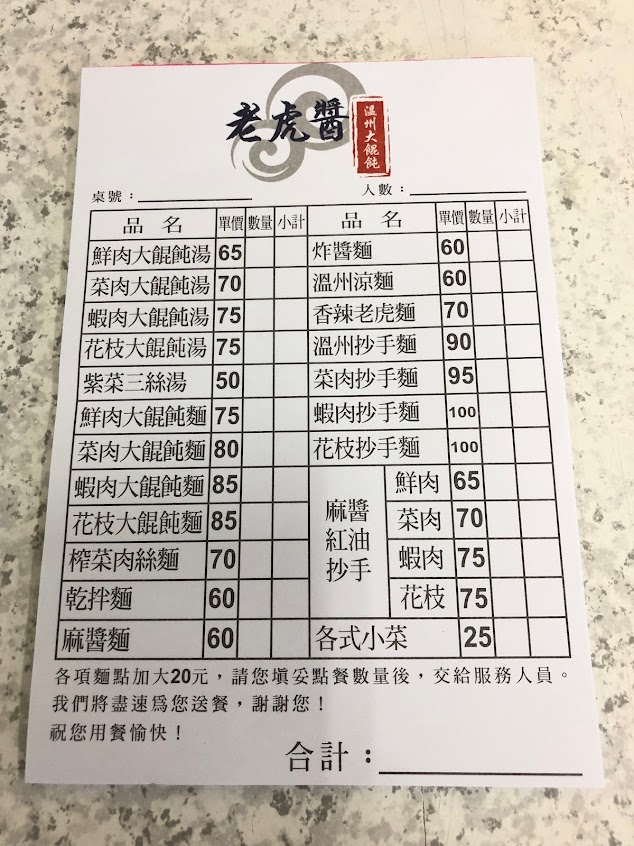 老虎醬
溫州大餛飩
桌號： 人數：
品 名 單價 數量 小計 品 名 單價 數量 小計
鮮肉大餛飩湯 65 炸醬麵 60
菜肉大餛飩湯 70 溫州涼麵 60
蝦肉大餛飩湯 75 香辣老虎麵 70
花枝大餛飩湯 75 溫州抄手麵 90
紫菜三絲湯 50 菜肉抄手麵 95
鮮肉大餛飩麵 75 蝦肉抄手麵 100
菜肉大餛飩麵 80 花枝抄手麵 100
蝦肉大餛飩麵 85 麻醬紅油抄手 鮮肉 65
花枝大餛飩麵 85 菜肉 70
榨菜肉絲麵 70 蝦肉 75
乾拌麵 60 花枝 75
麻醬麵 60 各式小菜 25
各項麵點加大20元，請您填妥點餐數量後，交給服務人員。
我們將盡速為您送餐，謝謝您！
祝您用餐愉快！
合計：